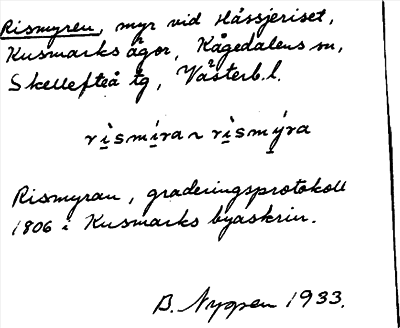 Rismyren, myr vid Håssjeriset,
Kusmarks ägor, Kågedalens sn,
Skellefteå tg, Västerb. l.
rìsmíra ~ rìsmýra
Rismyran, graderingsprotokoll
1806 i Kusmarks byaskrin.
B. 1933.